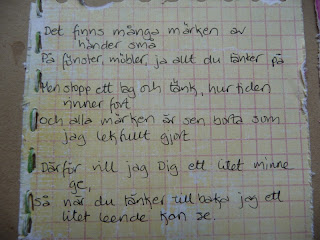 Det finns många märken av
händer små
På fönster, möbler, ja allt du tänker på
Men stopp ett tag och tänk, hur tiden
rinner fort
och alla märken är sen borta som
jag lekfullt gjort
Därför vill jag Dig ett litet minne
ge,
så när du tänker tillbaka jag ett
litet leende kan se.